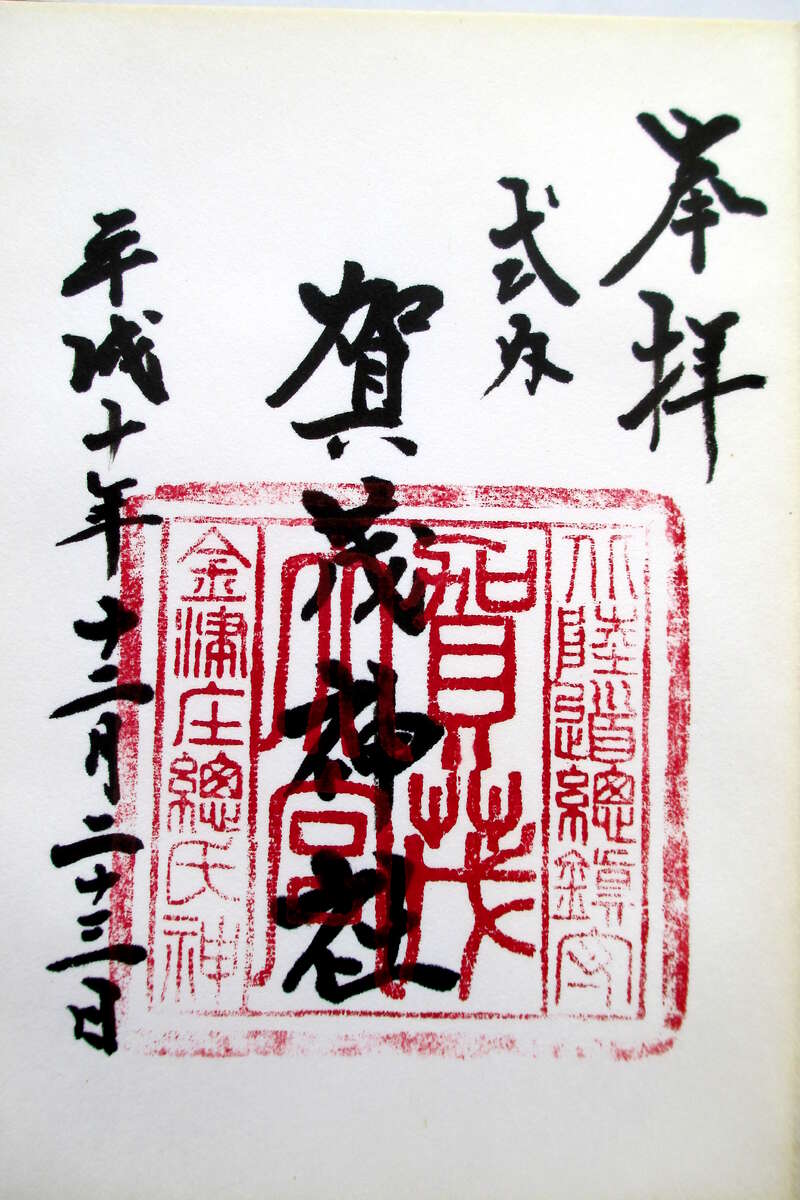 奉拝
式内
賀茂神社
平成十年十二月二十三日
北陸道總鎮守
賀茂
大宮
金津庄總氏神